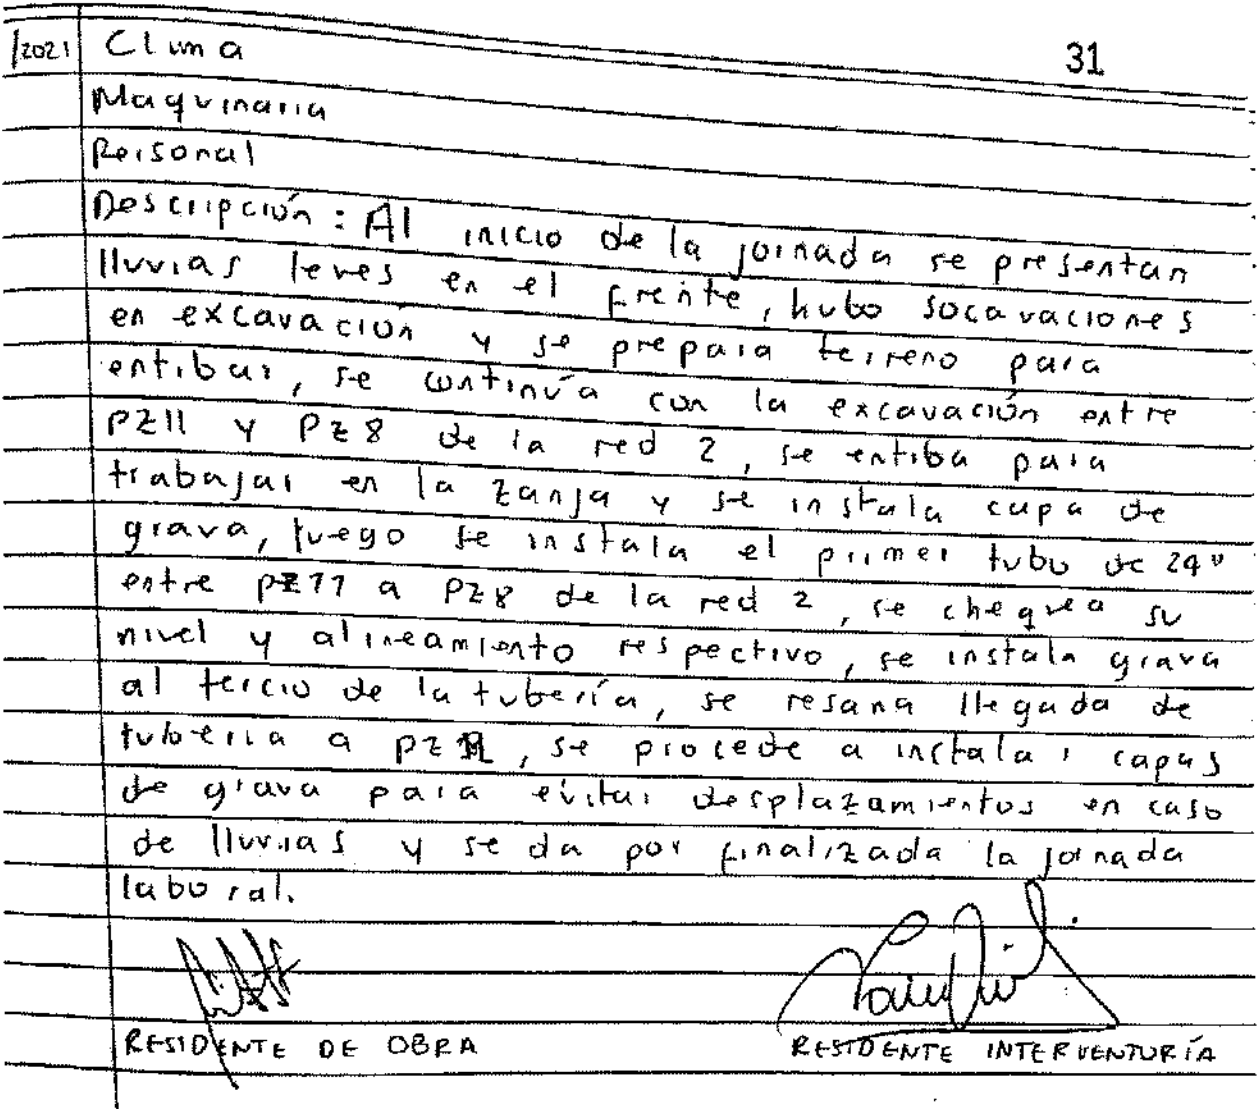 /2021 Clima 31
Maquinaria
Personal
Descripción: Al inicio de la jornada se presentan
lluvias leves en el frente, hubo socavaciones
en excavación y se prepara terreno para
entibar, se continúa con la excavación entre
PZ11 y PZ8 de la red 2, se entiba para
trabajar en la zanja y se instala capa de
grava, luego se instala el primer tubo de 24"
entre PZ11 a PZ8 de la red 2, se chequea su
nivel y alineamiento respectivo, se instala grava
al tercio de la tubería, se resana llegada de
tuberia a PZ11, se procede a instalar capas
de grava para evitar desplazamientos en caso
de lluvias y se da por finalizada la jornada
laboral.
RESIDENTE DE OBRA RESIDENTE INTERVENTURÍA